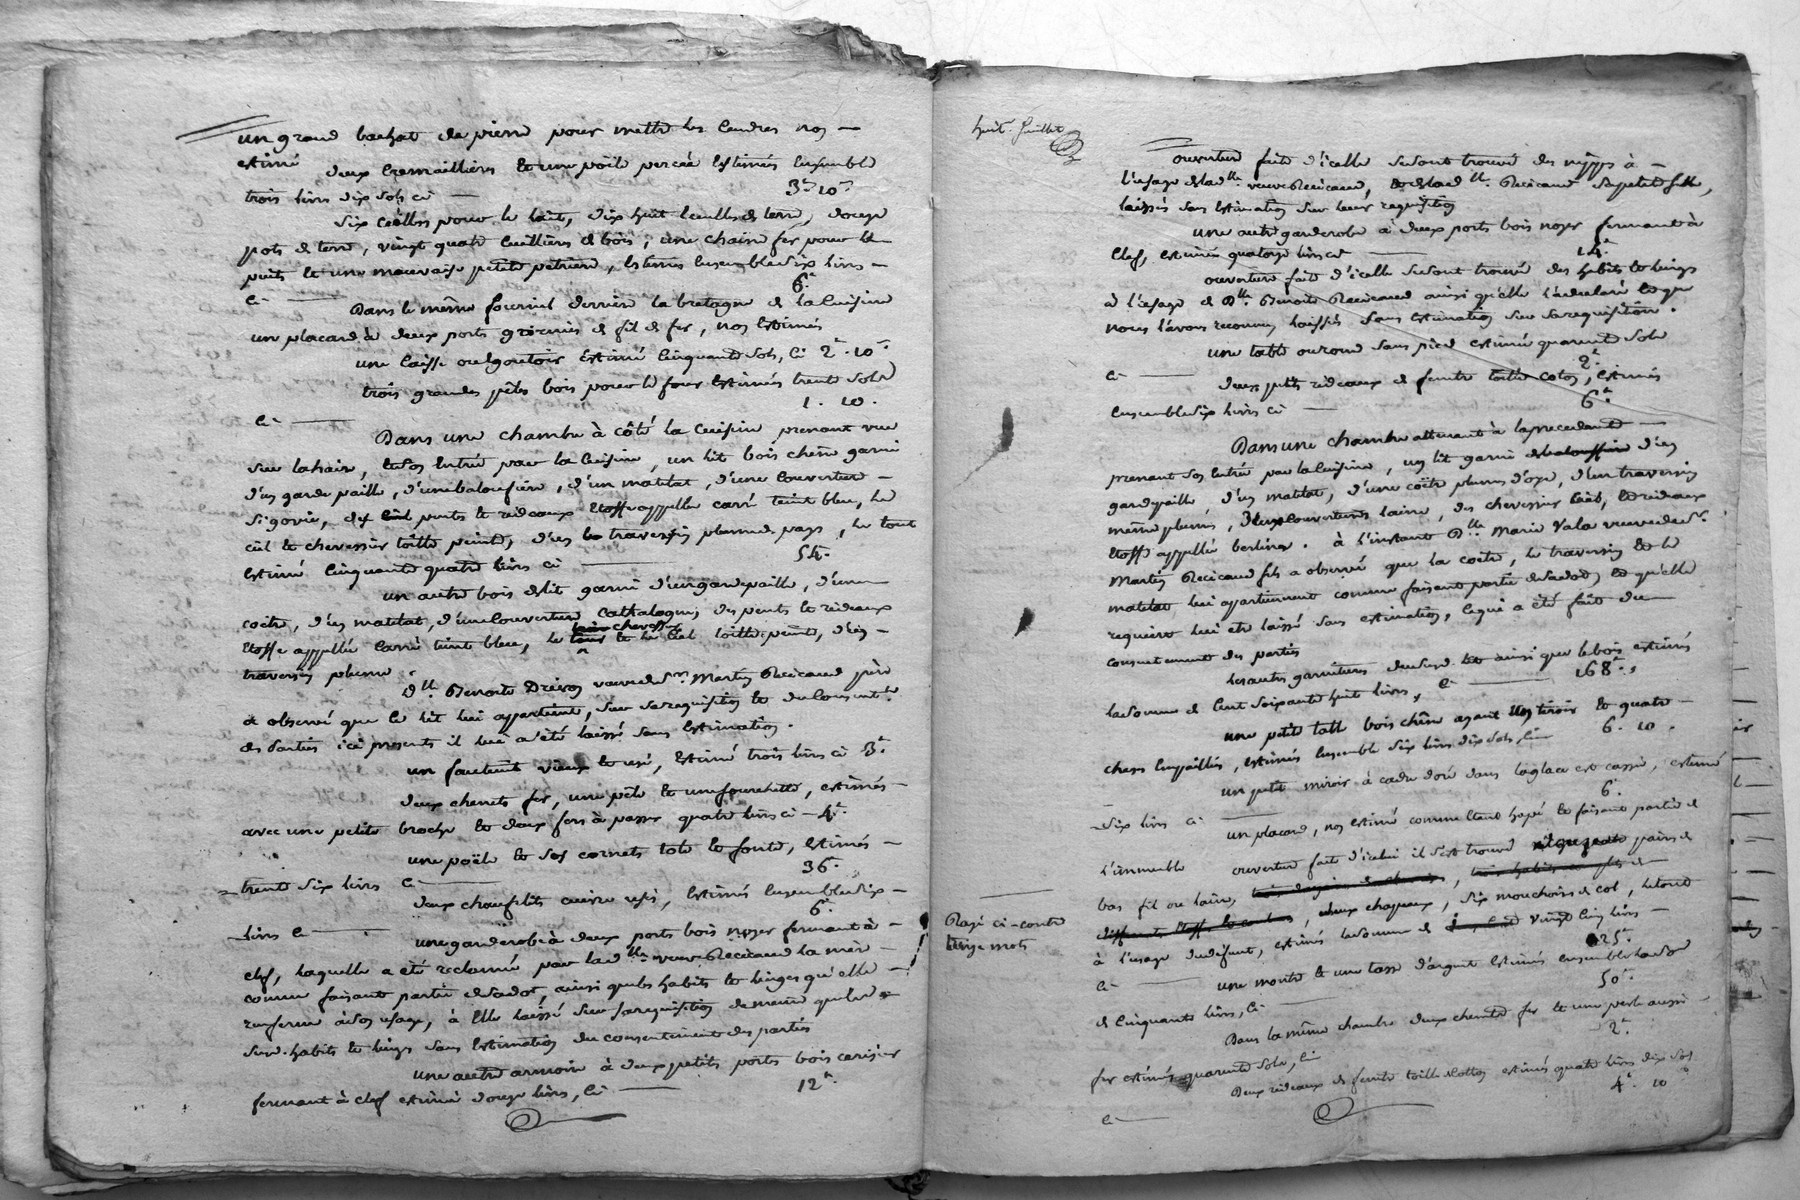 un grand bachat de pierre pour mettre les cendres non
estimé
deux cremaillieres et une poële percée estimés ensemble
trois livres dix sols ci 3# 10s
six ... pour le lait, dix huit ecuelles de terre, douze
pots de terre, vingt quatre cuilliers de bois, une chaine fer pour le
puits et une mauvaise petite petriere, estimés ensemble six livres
ci 6#
Dans le même fourniel derriere la bretagne de la cuisine
un placard à deux portes garnies de fil de fer, non estimés
une caisse ou egoutoir estimé cinquante sols, ci 2# 10s
trois grandes pêles bois pour le four estimés trente sols
ci 1. 10.
Dans une chambre à côté la cuisine prenant vue
sur la haire, et son entrée par la cuisine, un lit bois chêne garni
d'un garde paille, d'une baloufiere, d'un matelat, d'une couverture
sigovie, des pents et rideaux etoffe appellée carré teint bleu, le
ciel et chevessier toille peinte, d'un traversin plumes pays, le tout
estimé cinquante quatre livres ci 54.
un autre bois de lit garni d'un garde paille, d'une
coëtre, d'un matelat, d'une couverture cathalogne, des pents et rideaux
chevess.
etoffe appellée carré teint bleu, le et le ciel toille peinte, d'un
traversin plume
dlle Benoite Drevon veuve de Sr Martin Recicaud père
a observé que ce lit lui appartient, sur sa requisition et du consentt
des parties ici presents il lui a été laissé sans estimation.
un fauteuil vieux et usé, estimé trois livres ci 3#
deux chenets fer, une pêle et une fourchette, estimés
avec une petite broche et deux fers à passer quatre livres ci 4#
une poële et ses cornets tole et fonte, estimés
trente six livres ci 36.
deux chauflits cuivre usés, estimés ensemble six
livres ci 6#
une garderobe à deux portes bois noyer fermant à
clef, laquelle a été reclamée par lad. dlle veuve Recicaud la mère
comme faisant partie de sa dot, ainsi que les habits et linges qu'elle
renferme à son usage, à elle laissé sur sa requisition de meme que les
susd. habits et linges sans estimation du consentement des parties
une autre armoire à deux petits portes bois cerisier
fermant à clef estimé douze livres, ci 12#
huit Juillet
ouverture faite d'icelle se sont trouvé des nippes à
l'usage de lad. dlle veuve Recicaud, et de lad. dlle Recicaud sa petite fille,
laissés sans estimation sur leur requisition
une autre garderobe à deux portes bois noyer fermant à
clef, estimés quatorze livres ci 14#
ouverture faite d'icelle se sont trouvé des habits et linges
à l'usage de Dlle Benoite Recicaud ainsi qu'elle l'a declaré et que
nous l'avons reconnu, laissés sans estimation sur sa requisition.
une table ou rond sans pied estimé quarente sols
ci 2#
deux petits rideaux de fenetre toille coton, estimés
ensemble six livres ci 6#
Dans une chambre attenant à la precedente
prenant son entrée par la cuisine, un lit garni d'un
garde paille d'un matelat, d'une coëtre plumes d'oye, d'un traversin
même plumes, deux couvertures laine, des chevessier ciel, et rideaux
etoffe appellée berline. à l'instant Dlle Marie Vala veuve de Sr
Martin Recicaud fils a observé que la coëtre, le traversin et le
matelat lui appartiennent comme faisant partie de sa dot, et qu'elle
requiert lui etre laissé sans estimation, ce qui a été fait du
consentement des parties
les autres garnitures dud. lit ainsi que le bois estimés
la somme de cent soixante huit livres, ci 168#
une petite table bois chêne ayant un tiroir et quatre
cheses empaillés, estimés ensemble six livres dix sols, ci 6. 10.
un petit miroir à cadre doré dans la glace est cassée, estimé
six livres ci 6.
un placard, non estimé comme etant hapé et faisant partie de
l'immeuble ouverture faite d'icelui il s'est trouvé pairs de
bas fil ou laine,
, deux chapeaux, six mouchoirs de col, le tout
à l'usage du defunt, estimés la somme de vingt cinq livres
ci 25#
une montre et une tasse d'argent estimés ensemble la somme
de cinquante livres, ci 50#
Dans la même chambre deux chenets fer et une pesle aussi
fer estimés quarente sols, ci 2#
Deux rideaux de fenetre toille de coton estimés quatre livres dix sols
ci 4# 10s
Rayé ci-contre
treize mots